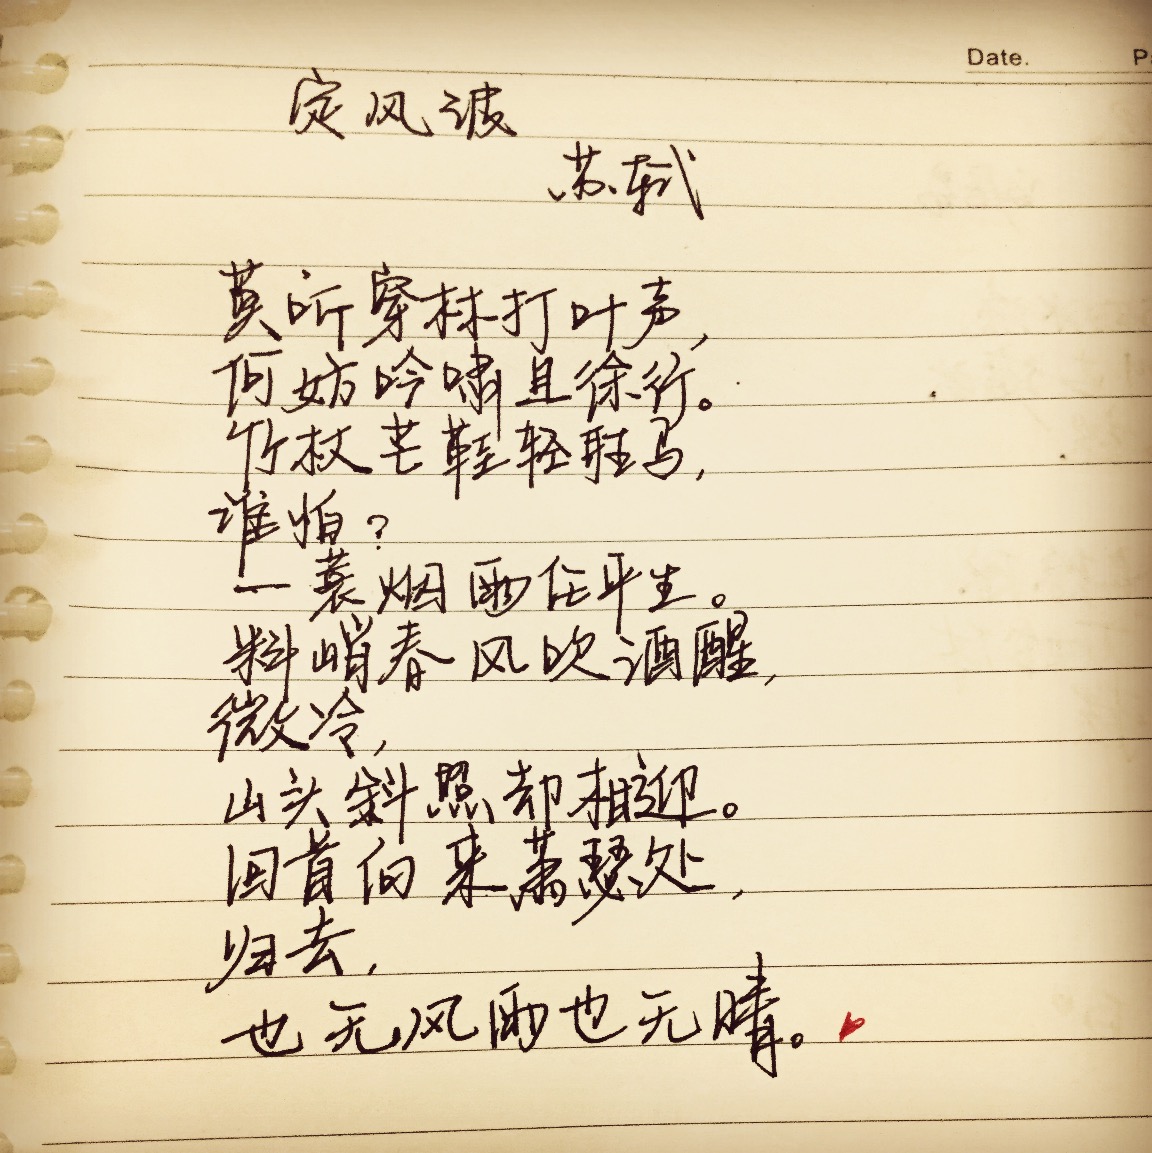 Date.
Pa
定风波
苏轼
莫听穿林打叶声,
何妨吟啸且徐行。
竹杖芒鞋轻胜马,
谁怕?
一蓑烟雨任平生。
料峭春风吹酒醒,
微冷,
山头斜照却相迎。
回首向来萧瑟处,
归去,
也无风雨也无晴。